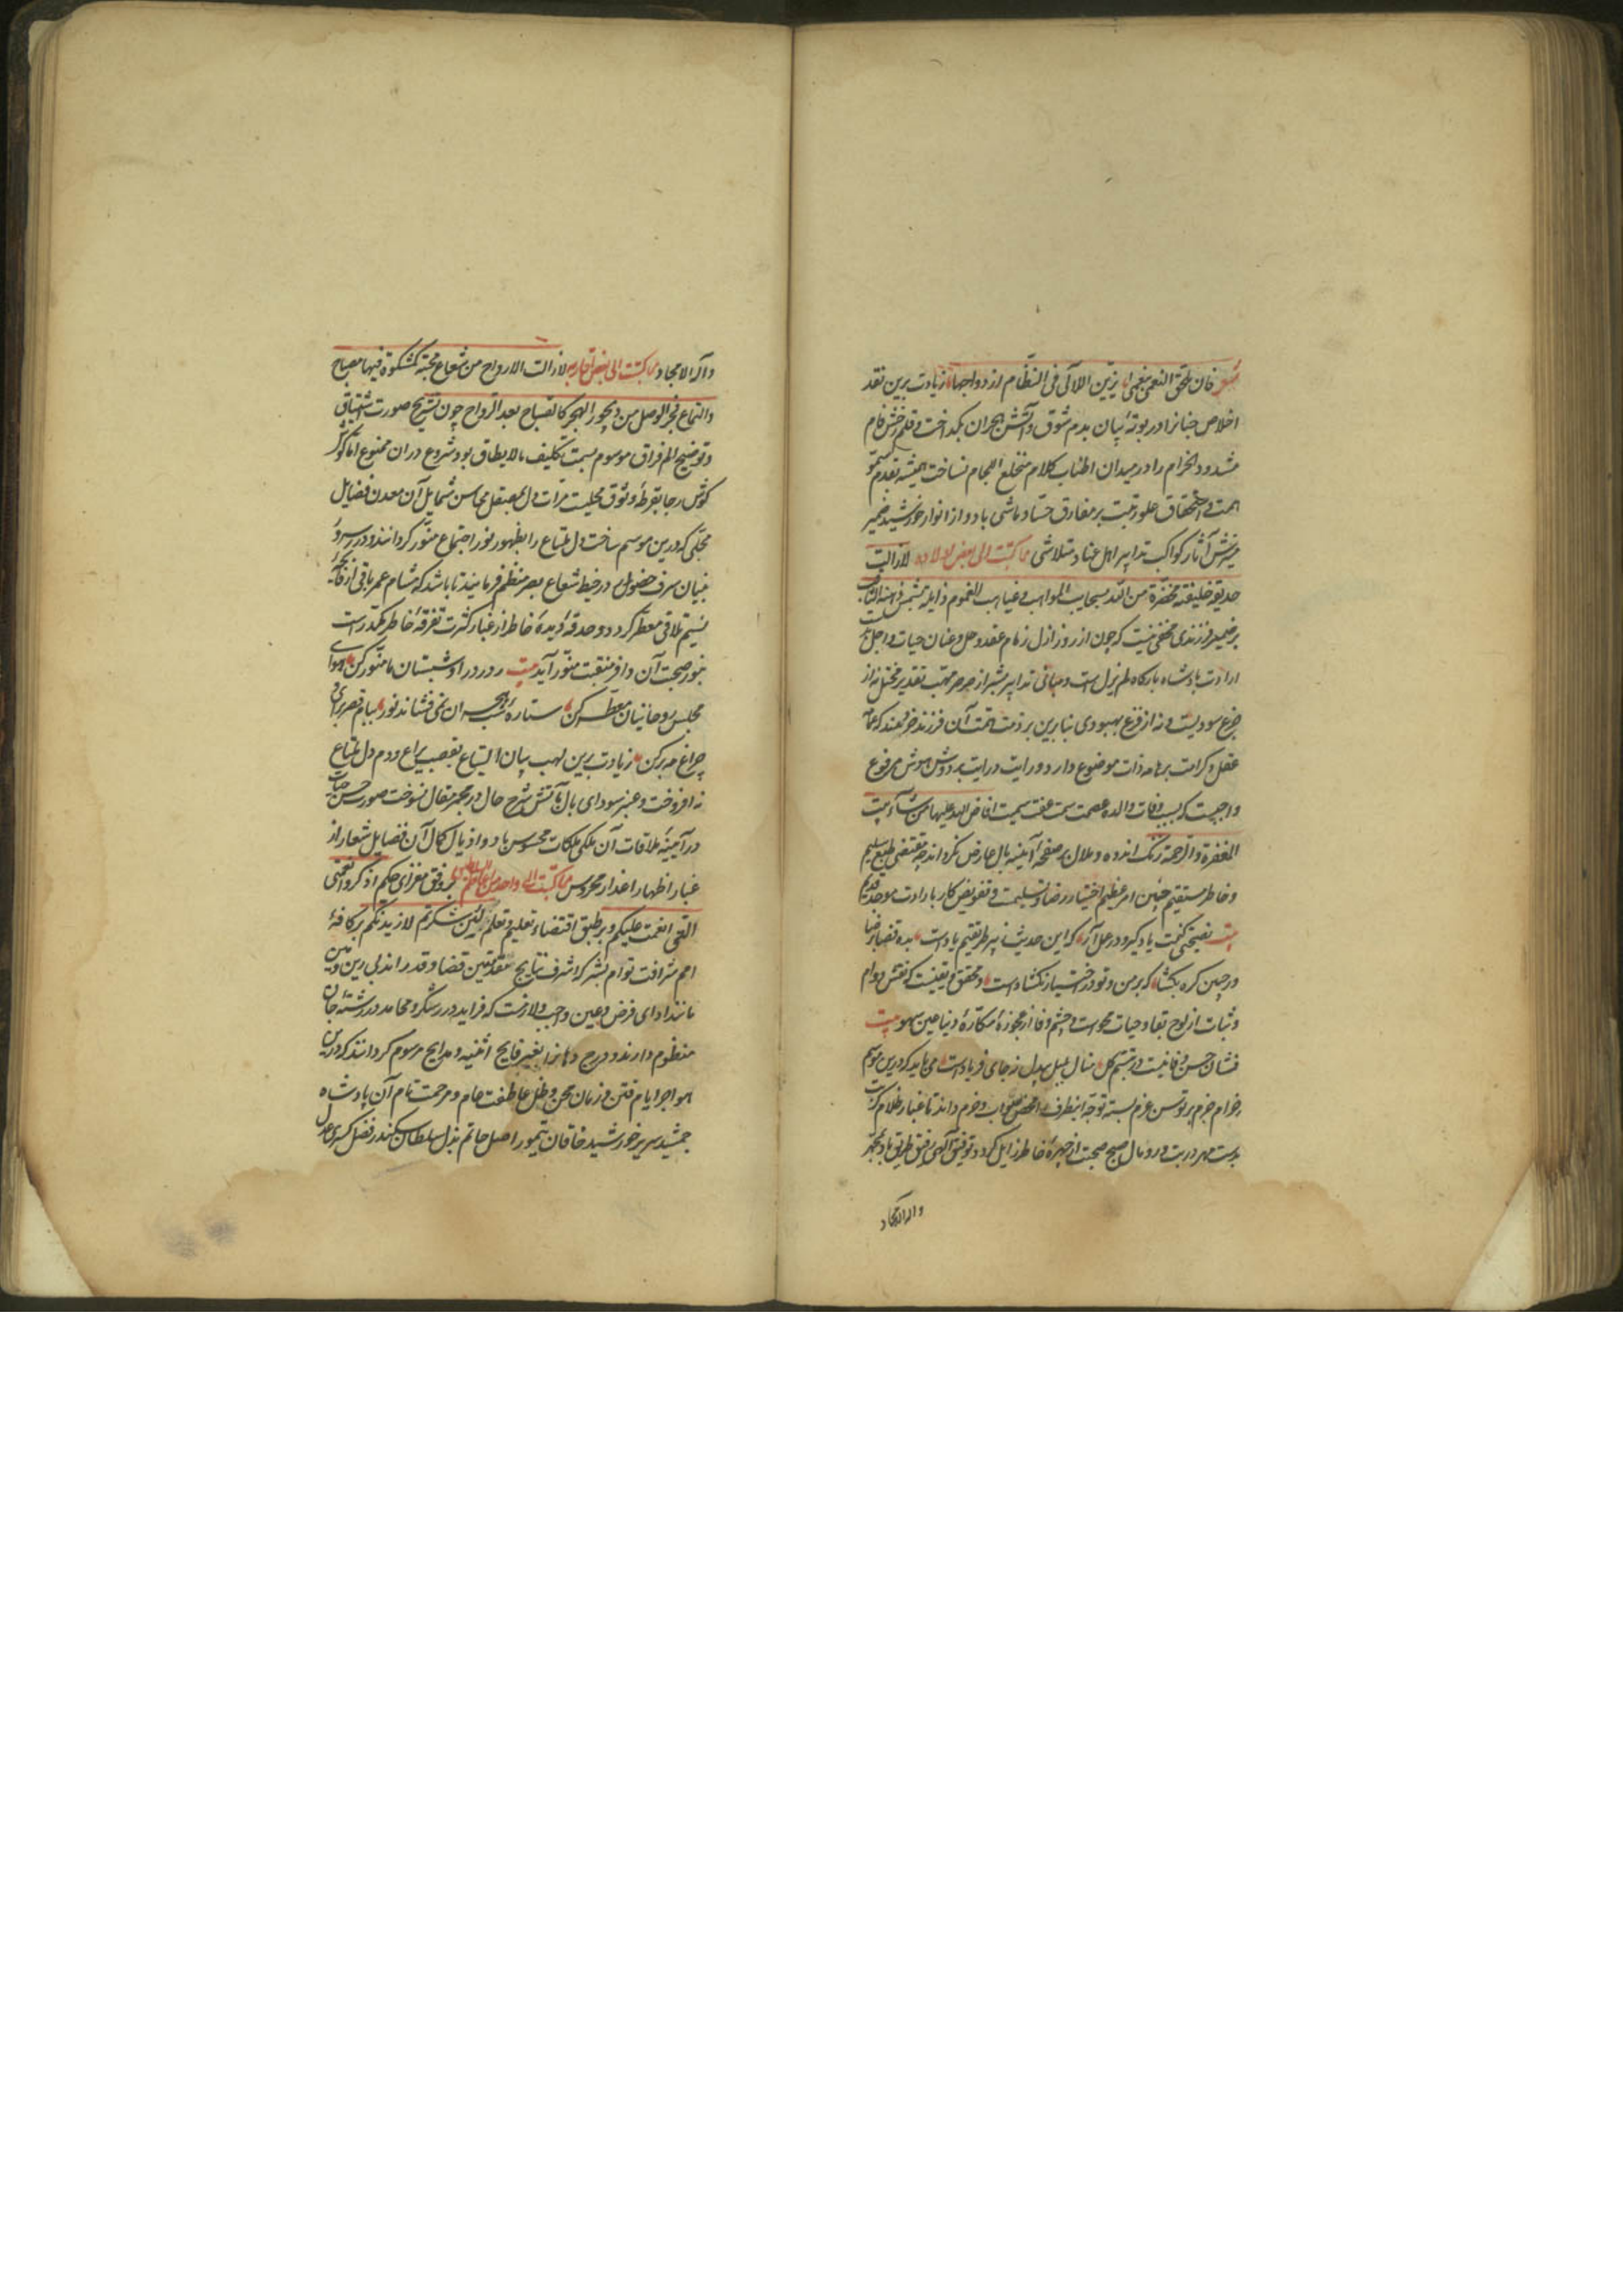 شعر فان تلحق النعمی بنعمی یزین اللآلی فی النظام ازدواجها زیادت برین نقد
اخلاص جنانرا در بوته بیان بدم شوق و آتش هجران بگداخت و قلم رخش فام
مشدود الخرام را در میدان اطناب کلام منخلع اللجام نساخت همیشه قدم سمو
همت و استحقاق علو رتبت بر مفارق حساد ماشی باد و از انوار خورشید ضمیر
آثار کواکب تدابیر اهل عناد متلاشی مما کتبت الی بعض اولاده لا زالت
حدیقة خلیقته مخضرة من الله بسحایب المواهب و غیاهب الغموم زایلة بشمس
بر ضمیر فرزندی مخفی نیست که چون از روز ازل زمام عقد و حل و عنان حیات و اجل
ارادت پادشاه بارگاه لم یزل است و مبانی تدابیر بشر از صرصر مهب تقدیر مختل نه از
جزع سودیست و نه از فزع بهبودی بنابرین بر ذمت همت آن فرزند خردمند که
عقل و کرامت بر هامه ذات موضوع دارد و رایت درایت بر دوش هوش مرفوع
واجبست که بسبب وفات والده عصمت سمت عفت سمیت افاض الله علیها من شآبیب
المغفرة والرحمة زنگ اندوه و ملال بر صفحه آینه بال عارض نگرداند چه مقتضی طبع سلیم
و خاطر مستقیم حین امر عظیم اختیار رضا و تسلیمست و تفویض کار بارادت موجد قدیم
بیت نصیحتی کنمت یاد گیر و در عمل آر که این حدیث ز پیر طریقتم یادست بداده رضا
و ز جبین گره بگشا که بر من و تو در اختیار نگشادست و محقق و یقینست که نقش دوام
و ثبات از لوح بقا و حیات محوست و چشم وفا از عجوزه مکاره دنیا عین سهو بیت
نشان حسن وفا نیست در تبسم گل بنال بلبل بیدل که جای فریادست می باید که درین موسم
حزام جزم بر توسن عزم بسته توجه اینطرف را محض صواب و حزم داند تا غبار ظلام کربت
بدست مهر در بدو رومال صبح صحبت از چهره خاطر زایل گردد توفیق آلهی رفیق طریق باد بمحمد
وآله الامجاد
وآله الامجاد مما کتبت الی بعض اقاربه لا زالت الارواح من شعاع محبته کمشکوة فیها مصباح
والتماع فجر الوصل من دیجور الهجر کالصباح بعد الرواح چون تشریح صورت اشتیاق
و توضیح الم فراق موسوم بسمت تکلیف ما لا یطاق بود شروع دران ممنوع
گوش رجا بقرطه وثوق محلیست و مرآت دل بصیقل محاسن شمایل آن معدن فضایل
مجلی که درین موسم ساحت دل ملتاع را بظهور نور اجتماع منور گردانند و در سرو
بنیان سرف حضول در خیط شعاع بصر منظم فرمایند تا باشد که مشام عمر باقی از
نسیم تلاقی معطر گردد و حدقه دیده خاطر از غبار کثرت تفرقه خاطر مکدر است
بنور صحبت آن وافر منقبت منور آید بیت ز در درآ و شبستان ما منور کن هوای
مجلس روحانیان معطر کن ستاره شب هجران نمی فشاند نور ببام قصر برآی و
چراغ مه برکن زیادت برین لهب بیان التیاع بقصب یراع و دم دل ملتاع
نه افروخت و عنبر سودای بال بآتش شرح حال در مجمر مقال نسوخت صور حسن حیات
در آیینه ملاقات آن ملکی ملکات محسوس باد و اذیال کمال آن فضایل شعار از
غبار اظهار اعذار محروس مما کتبت الی واحد من اعاظم السلاطین بر وفق مغزای حکم اذکروا نعمتی
التی انعمت علیکم و بر طبق اقتضاء تعلیم و تعلم لئن شکرتم لازیدنکم بر کافه
امم شرافت توام بشر که اشرف نتایج مقدمتین قضا و قدر اند بی رین و مین
مانند ادای فرض و عین واجب و لازمست که فراید درر شکر و محامد در رشته جان
منظوم دارند و درج دهانرا بعنبر فایح اثنیه و مدایح مرسوم گردانند که درین
هواجر ایام فتن و زمان محن و ظل عاطفت عام و مرحمت تام آن پادشاه
جمشید سریر خورشید خاقان تیمور اصل حاتم بذل سلطان سکندر فضل کسری عدل